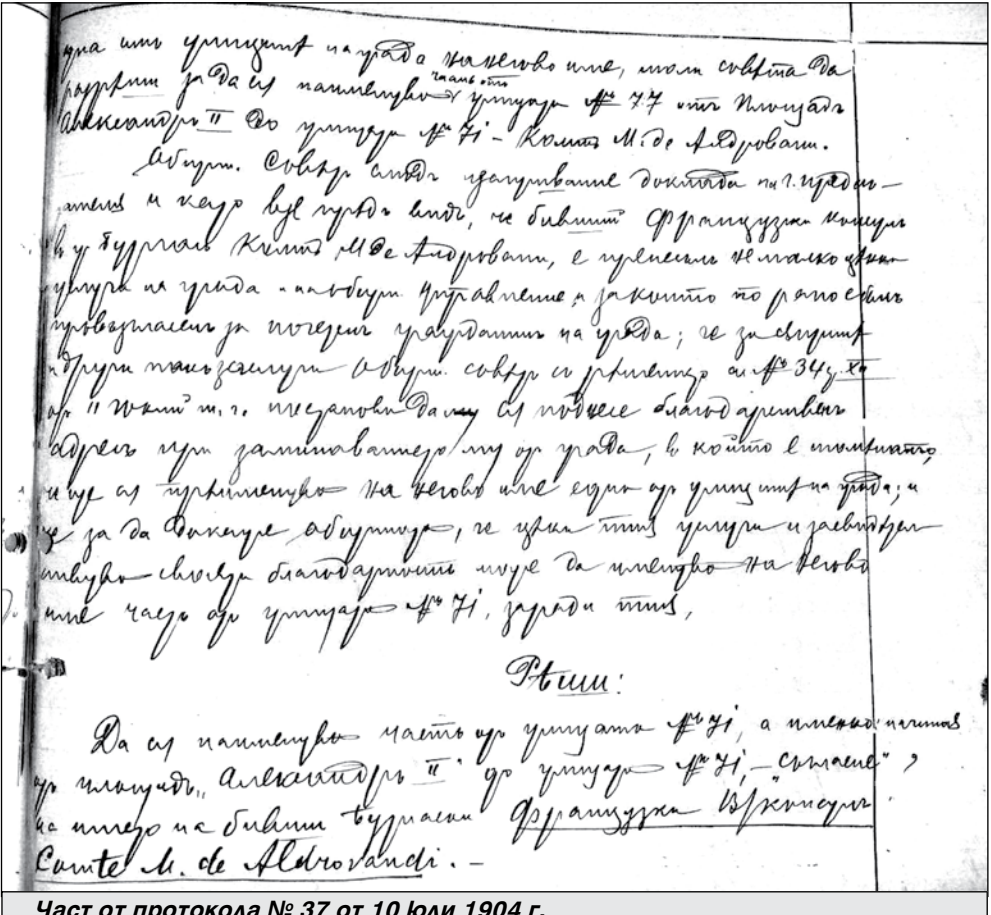 една отъ улицитѣ на града на негово име, моли съвѣта да
разрѣши за да се наименува часть отъ улицата № 77 отъ площадъ
Александръ II до улицата № 71 – Комтъ М. де Алдровани.
Общин. съвѣтъ слѣдъ изслушвание доклада на г. предсе-
дателя и като взе предъ видъ, че бившия Французки консулъ
въ гр. Бургасъ Комтъ М. де Алдровани, е принесълъ не малко цѣнни
услуги на града и на общин. управление, за които по рано е билъ
провъзгласенъ за почетенъ гражданинъ на града; че за сѫщитѣ
и други такъ заслуги Общин. съвѣтъ съ решението си № 34 з. XII
отъ 11 юний т. г. постанови да му се поднесе благодарственъ
адресъ при заминаванието му отъ града, въ който е
и да се преименува на негово име една отъ улицитѣ на града; и
че за да докаже общината, че цѣни тия услуги и засвидетел
ствува своята благодарность може да именува на негово
име часть отъ улицата № 71, заради тия,
Рѣши:
Да се наименува часть отъ улицата № 71, а именно: начиная
отъ площадъ „Александръ II" до улицата № 71, – „Съгласие",
на името на бивши Бургаски Французки В/консулъ
Comte M. de Aldrovandi. –
Част от протокола № 37 от 10 юли 1904 г.